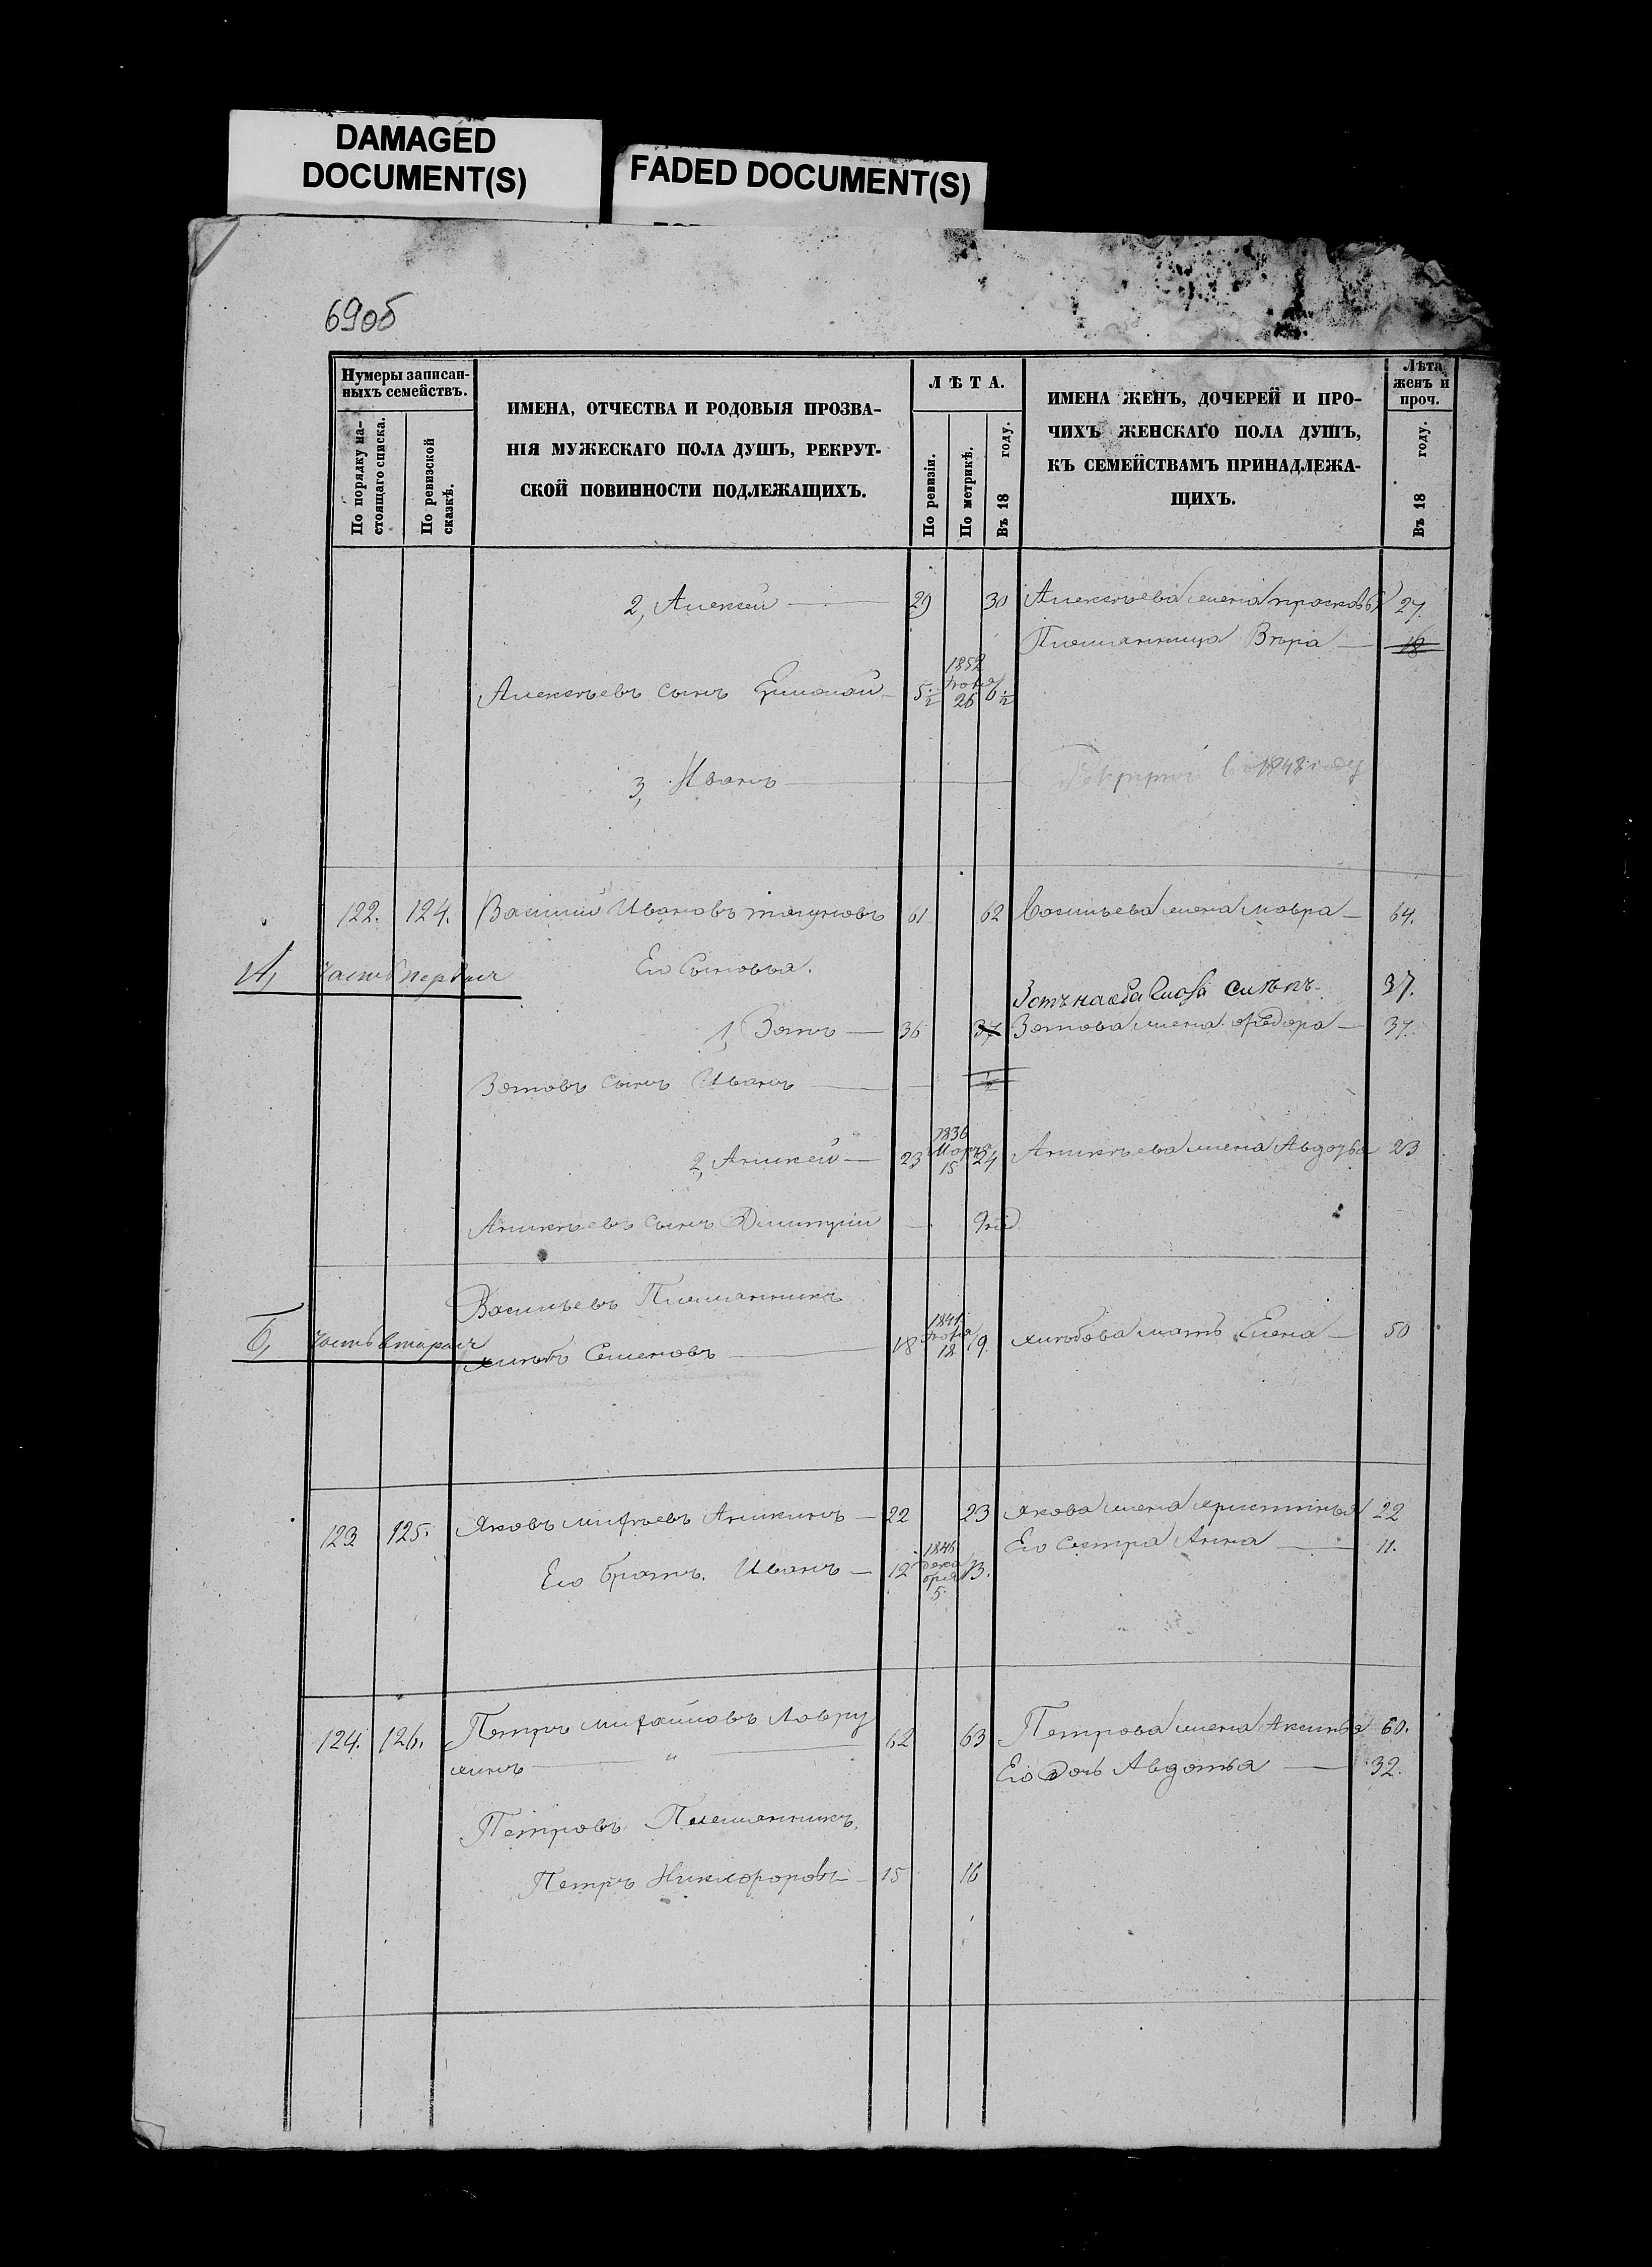 DAMAGED
DOCUMENT(S)
FADED DOCUMENT(S)
69об
Нумеры записан-
ныхъ семействъ.
По порядку на-
стоящаго списка.
По ревизской
сказкѣ.
ИМЕНА, ОТЧЕСТВА И РОДОВЫЯ ПРОЗВА-
НІЯ МУЖЕСКАГО ПОЛА ДУШЪ, РЕКРУТ-
СКОЙ ПОВИННОСТИ ПОДЛЕЖАЩИХЪ.
ЛѢТА.
По ревизіи.
По метрикѣ.
Въ 18 году.
ИМЕНА ЖЕНЪ, ДОЧЕРЕЙ И ПРО-
ЧИХЪ ЖЕНСКАГО ПОЛА ДУШЪ,
КЪ СЕМЕЙСТВАМЪ ПРИНАДЛЕЖА-
ЩИХЪ.
Лѣта
женъ и
проч.
Въ 18 году.
2, Алексей 29 30 Алексѣева жена просковья 27.
Племянница Вѣра 18
Алексѣевъ сынъ 5 1/2 1852 26 6 1/2
3, Иванъ в 1848 году
122. 124. Василий Ивановъ 61 62 Васильева жена мавра 64.
А, часть первая Его Сыновья.
37.
1, Зотъ 36 37 Зотова жена федора 37.
Зотовъ сынъ Иванъ 1/2
2, Аникей 23 1836 Март 15 24 Аникѣева жена Авдотья 23
Аникѣевъ сынъ Димитрий
Васильевъ Племянникъ
Б, часть вторая хлѣбъ Семеновъ 18 1841 12 19. хлѣбова мать Елена 50
123 125. Яковъ Аникинъ 22 23 якова жена христинья 22
Его сестра Анна 11.
Его братъ Иванъ 12 1846 дека бря 5. 13.
124. 126. Петръ михайловъ Лавру
шинъ 62 63 Петрова жена Аксинья 60.
Его дочь Авдотья 32.
Петровъ Племянникъ
Петръ Никифоровъ 15 16